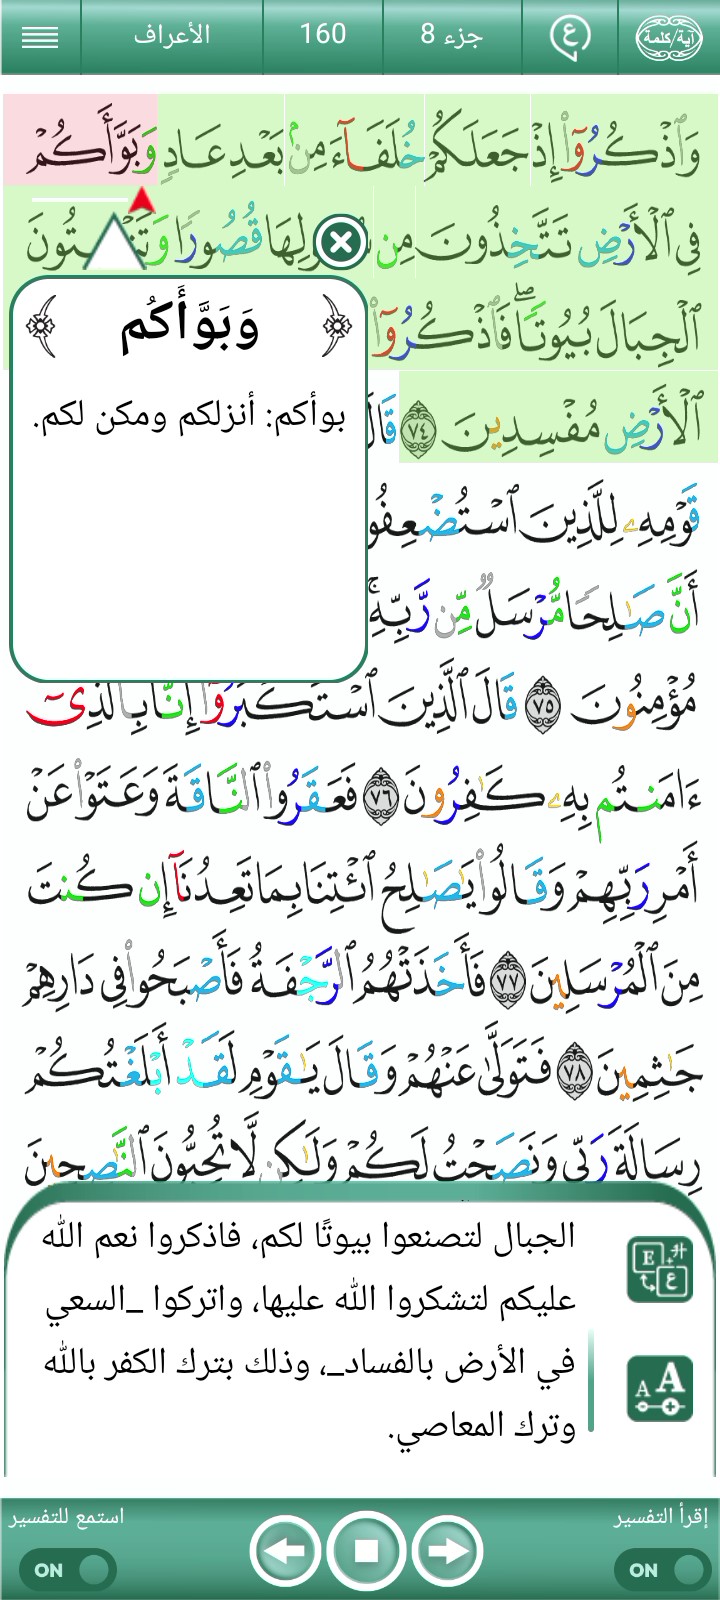 الأعراف 160 جزء 8 آية/كلمة
وَٱذْكُرُوٓا۟ إِذْ جَعَلَكُمْ خُلَفَآءَ مِنۢ بَعْدِ عَادٍ وَبَوَّأَكُمْ
فِى ٱلْأَرْضِ تَتَّخِذُونَ مِن قُصُورًا
وَبَوَّأَكُم
بوأكم: أنزلكم ومكن لكم.
ٱلْجِبَالَ بُيُوتًا ۖ فَٱذْكُرُوٓا۟
ٱلْأَرْضِ مُفْسِدِينَ ٧٤
قَوْمِهِۦ لِلَّذِينَ
أَنَّ صَـٰلِحًا مُّرْسَلٌ مِّن رَّبِّهِۦ ۚ
مُؤْمِنُونَ ٧٥ قَالَ ٱلَّذِينَ ٱسْتَكْبَرُوٓا۟ إِنَّا بِٱلَّذِىٓ
ءَامَنتُم بِهِۦ كَـٰفِرُونَ ٧٦ فَعَقَرُوا۟ ٱلنَّاقَةَ وَعَتَوْا۟ عَنْ
أَمْرِ رَبِّهِمْ وَقَالُوا۟ يَـٰصَـٰلِحُ ٱئْتِنَا بِمَا تَعِدُنَآ إِن كُنتَ
مِنَ ٱلْمُرْسَلِينَ ٧٧ فَأَخَذَتْهُمُ ٱلرَّجْفَةُ فَأَصْبَحُوا۟ فِى دَارِهِمْ
جَـٰثِمِينَ ٧٨ فَتَوَلَّىٰ عَنْهُمْ وَقَالَ يَـٰقَوْمِ لَقَدْ أَبْلَغْتُكُمْ
رِسَالَةَ رَبِّى وَنَصَحْتُ لَكُمْ وَلَـٰكِن لَّا تُحِبُّونَ ٱلنَّـٰصِحِينَ
الجبال لتصنعوا بيوتًا لكم، فاذكروا نعم الله
عليكم لتشكروا الله عليها، واتركوا _السعي
في الأرض بالفساد_، وذلك بترك الكفر بالله
وترك المعاصي.
إقرأ التفسير استمع للتفسير
ON ON